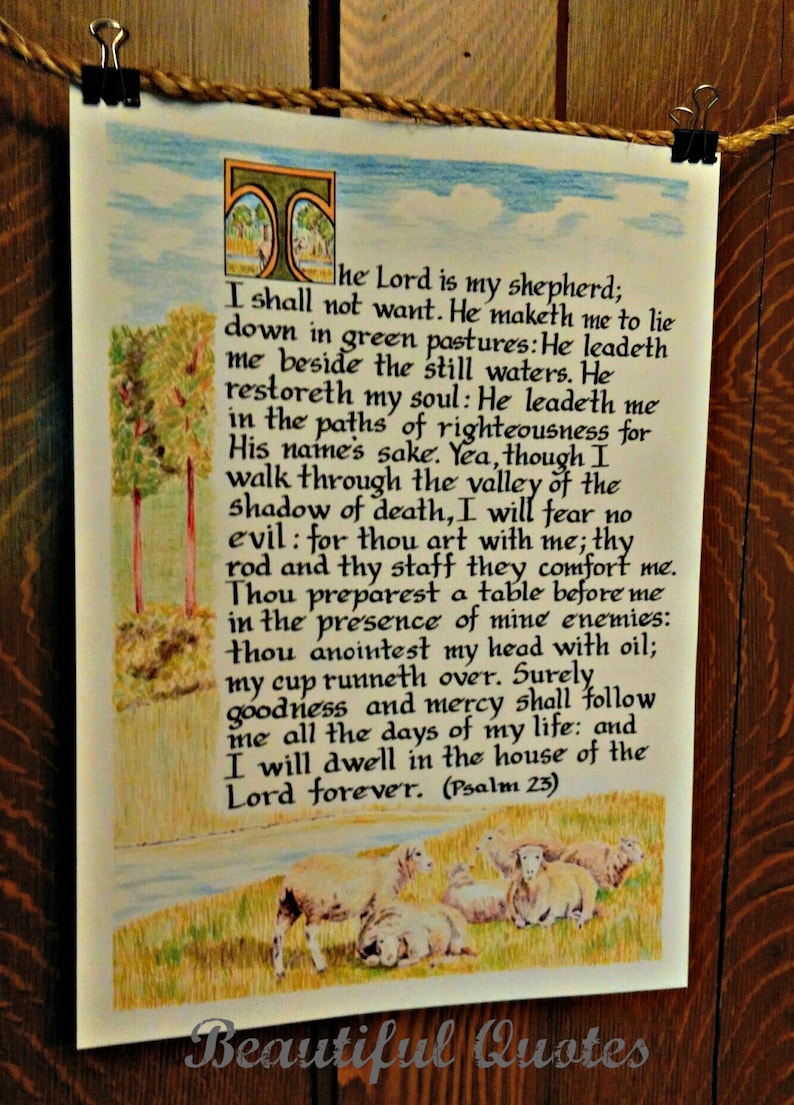 The Lord is my shepherd;
I shall not want. He maketh me to lie
down in green pastures: He leadeth
me beside the still waters. He
restoreth my soul: He leadeth me
in the paths of righteousness for
His name's sake. Yea, though I
walk through the valley of the
shadow of death, I will fear no
evil: for thou art with me; thy
rod and thy staff they comfort me.
Thou preparest a table before me
in the presence of mine enemies:
thou anointest my head with oil;
my cup runneth over. Surely
goodness and mercy shall follow
me all the days of my life: and
I will dwell in the house of the
Lord forever. (Psalm 23)
Beautiful Quotes